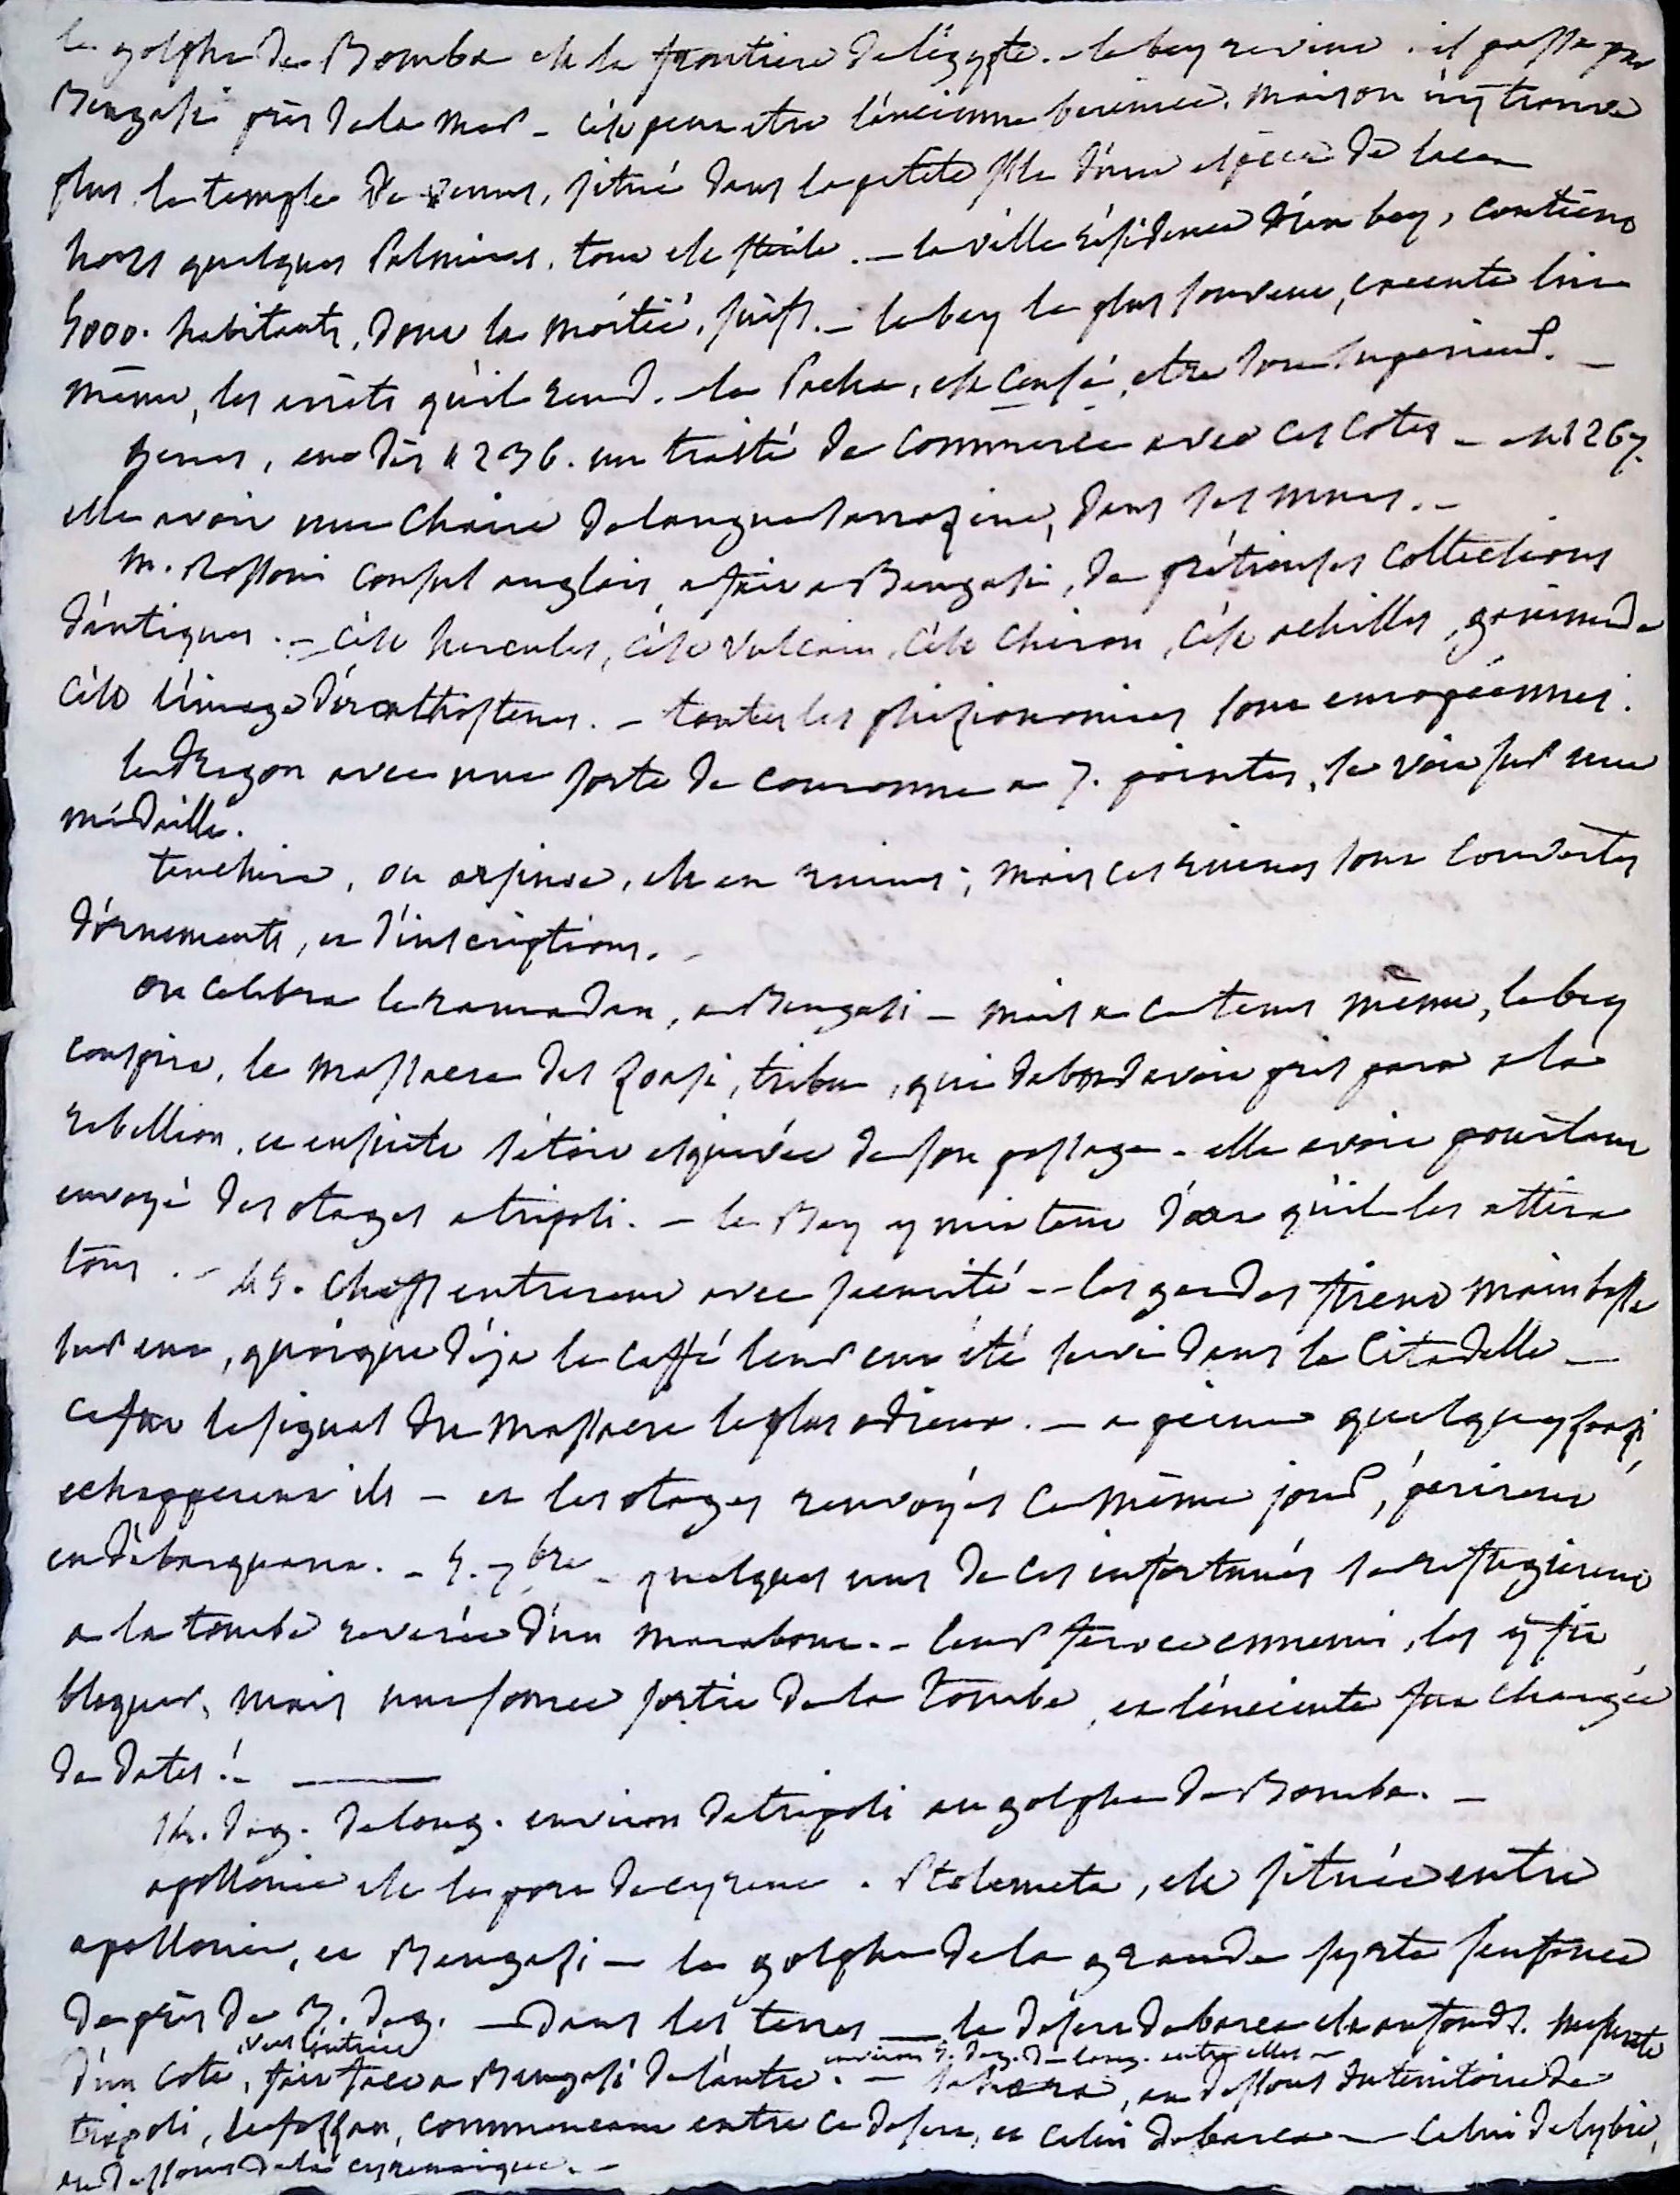 le golphe de Bomba est la frontiere de l'égypte. - le bey revint. il passa par
Bengasi près de la mer - c'est peut etre l'ancienne berenice. mais on n'y trouve
plus le temple de venus, situé dans la petite isle d'une espèce de lac
hors quelques Palmiers, tout est sterile. - la ville résidence d'un bey, contient
5000. habitants, dont la moitié, juifs. - le bey le plus souvent, execute lui
même, les arrêts qu'il rend. le Pacha, est censé, etre son superieur. -
Genes, eut dès 1236. un traité de commerce avec ces cotes - en 1267.
elle avoit une chaire de langue sarrazine, dans ses murs. -
M. Rossoni consul anglais, a fait a Bengasi, de prétieuses collections
d'antiques. - c'est hercules, c'est vulcain, c'est chiron, c'est achilles, ganimede
c'est l'image d'erathostenes. - toutes les phisionomies sont européennes.
le dragon avec une sorte de couronne a 7. pointes, se voit sur une
médaille.
teuchira, ou arsinoe, est en ruines ; mais ces ruines sont couvertes
d'ornements, et d'inscriptions. -
on celebra le ramadan, a Bengasi - mais a ce tems même, le bey
conspira, le massacre des zoasi, tribu, qui dabord avoit pris part a la
rebellion, et ensuite s'étoit esquivée de son passage - elle avoit pourtant
envoyé des otages a tripoli. - le Bey y mit tant d'art qu'il les attira
tous. - 45. chefs entrerent avec securité - les gardes firent main basse
sur eux, quoique déja le caffé leur eut été servi dans la citadelle -
ce fut le signal du massacre le plus odieux. - a peine quelques zoasi
echapperent ils - et les otages renvoyés ce même jour, périrent
en débarquant. - 5. 7bre - quelques uns de ces infortunés se refugierent
a la tombe reverée d'un marabout. - leur feroce ennemi, les y fit
bloquer, mais une source sortit de la tombe, et l'enceinte fut changée
de dates ! -
14. deg. de long. environ de tripoli au golphe de Bomba. -
apollonie est le port de cyrene. Ptolemeta, est située entre
apollonie, et Bengasi - le golphe de la grande syrte s'enfonce
de près de 3. deg. - dans les terres - le desert de barca est au fond. Mesurate
vers l'entrée
d'un coté, fait face a Bengasi de l'autre. -
environ 5. deg. de long. entre elles -
au dessous du territoire de
tripoli, le fezzan, commencant entre ce desert, et celui de barca - celui de lybie,
au dessous de la cyrenaique. -